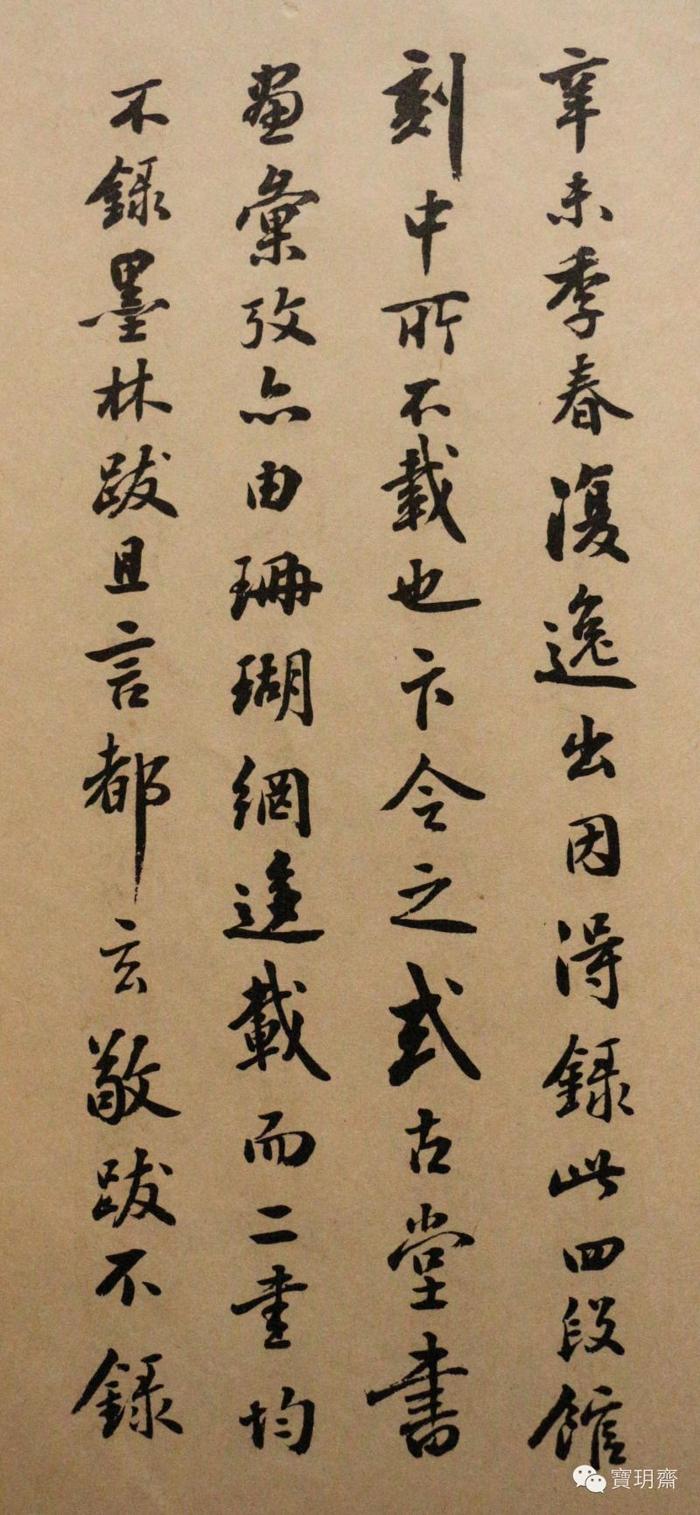 辛未季春復逸出因得錄此四段館
刻中所不載也卞令之式古堂書
畫彙攷亦由珊瑚網迻載而二書均
不錄墨林跋且言都玄敬跋不錄
寶玥齋